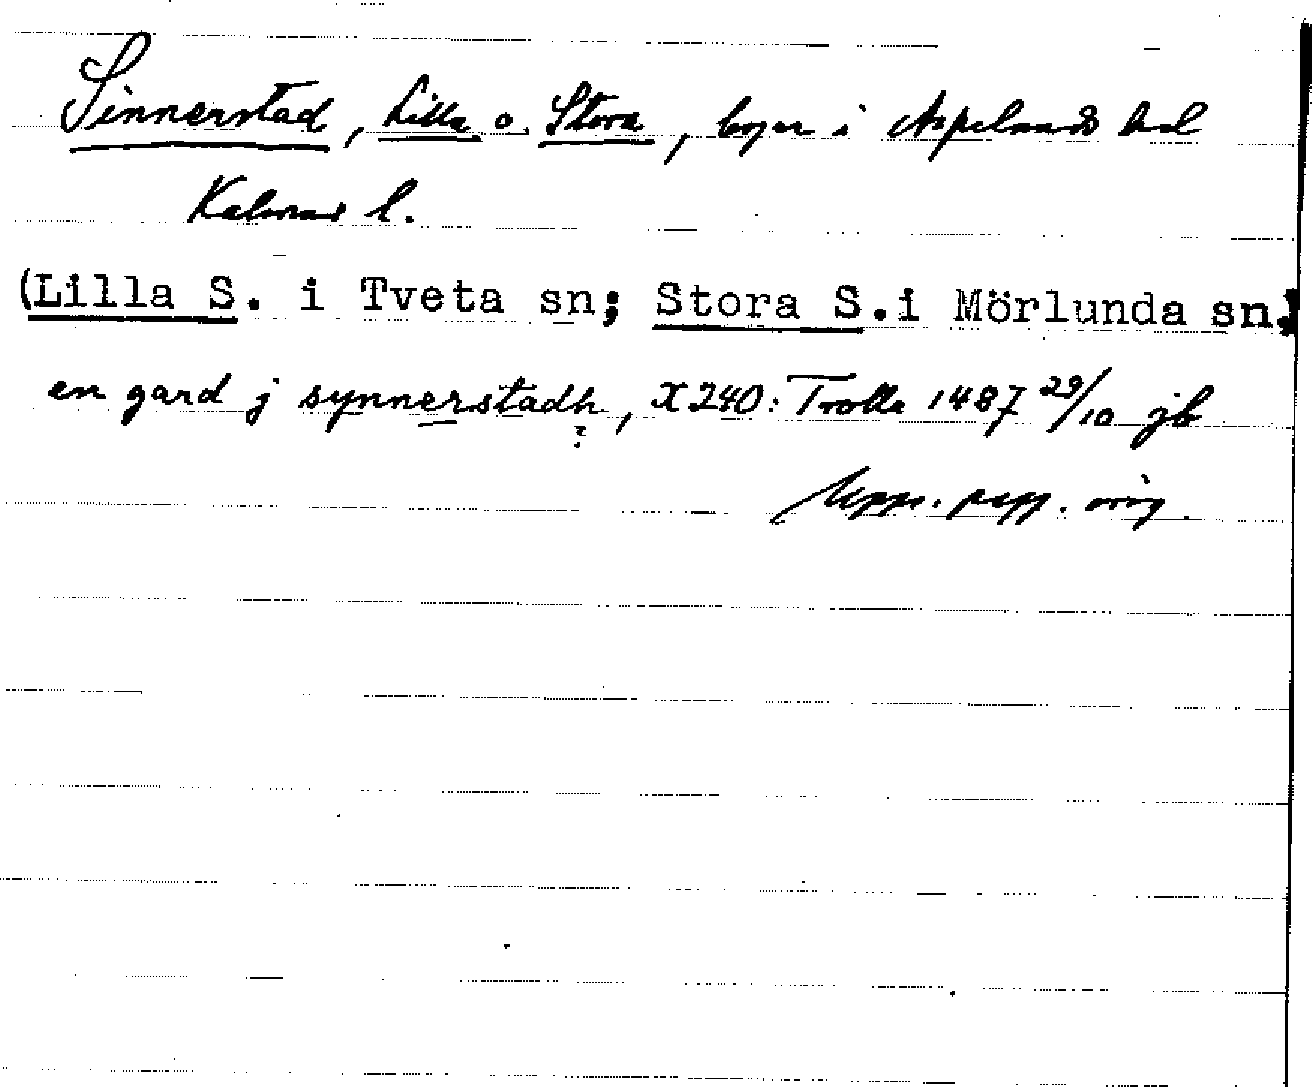 Sinnerstad, Lilla o. Stora, byar i Aspelands hd
Kalmar l.
(Lilla S. i Tveta sn; Stora S.i Mörlunda sn.)
en gard j synnerstadh, X 240: Trolle 1487 29/10 jb
Upps. papp. orig.